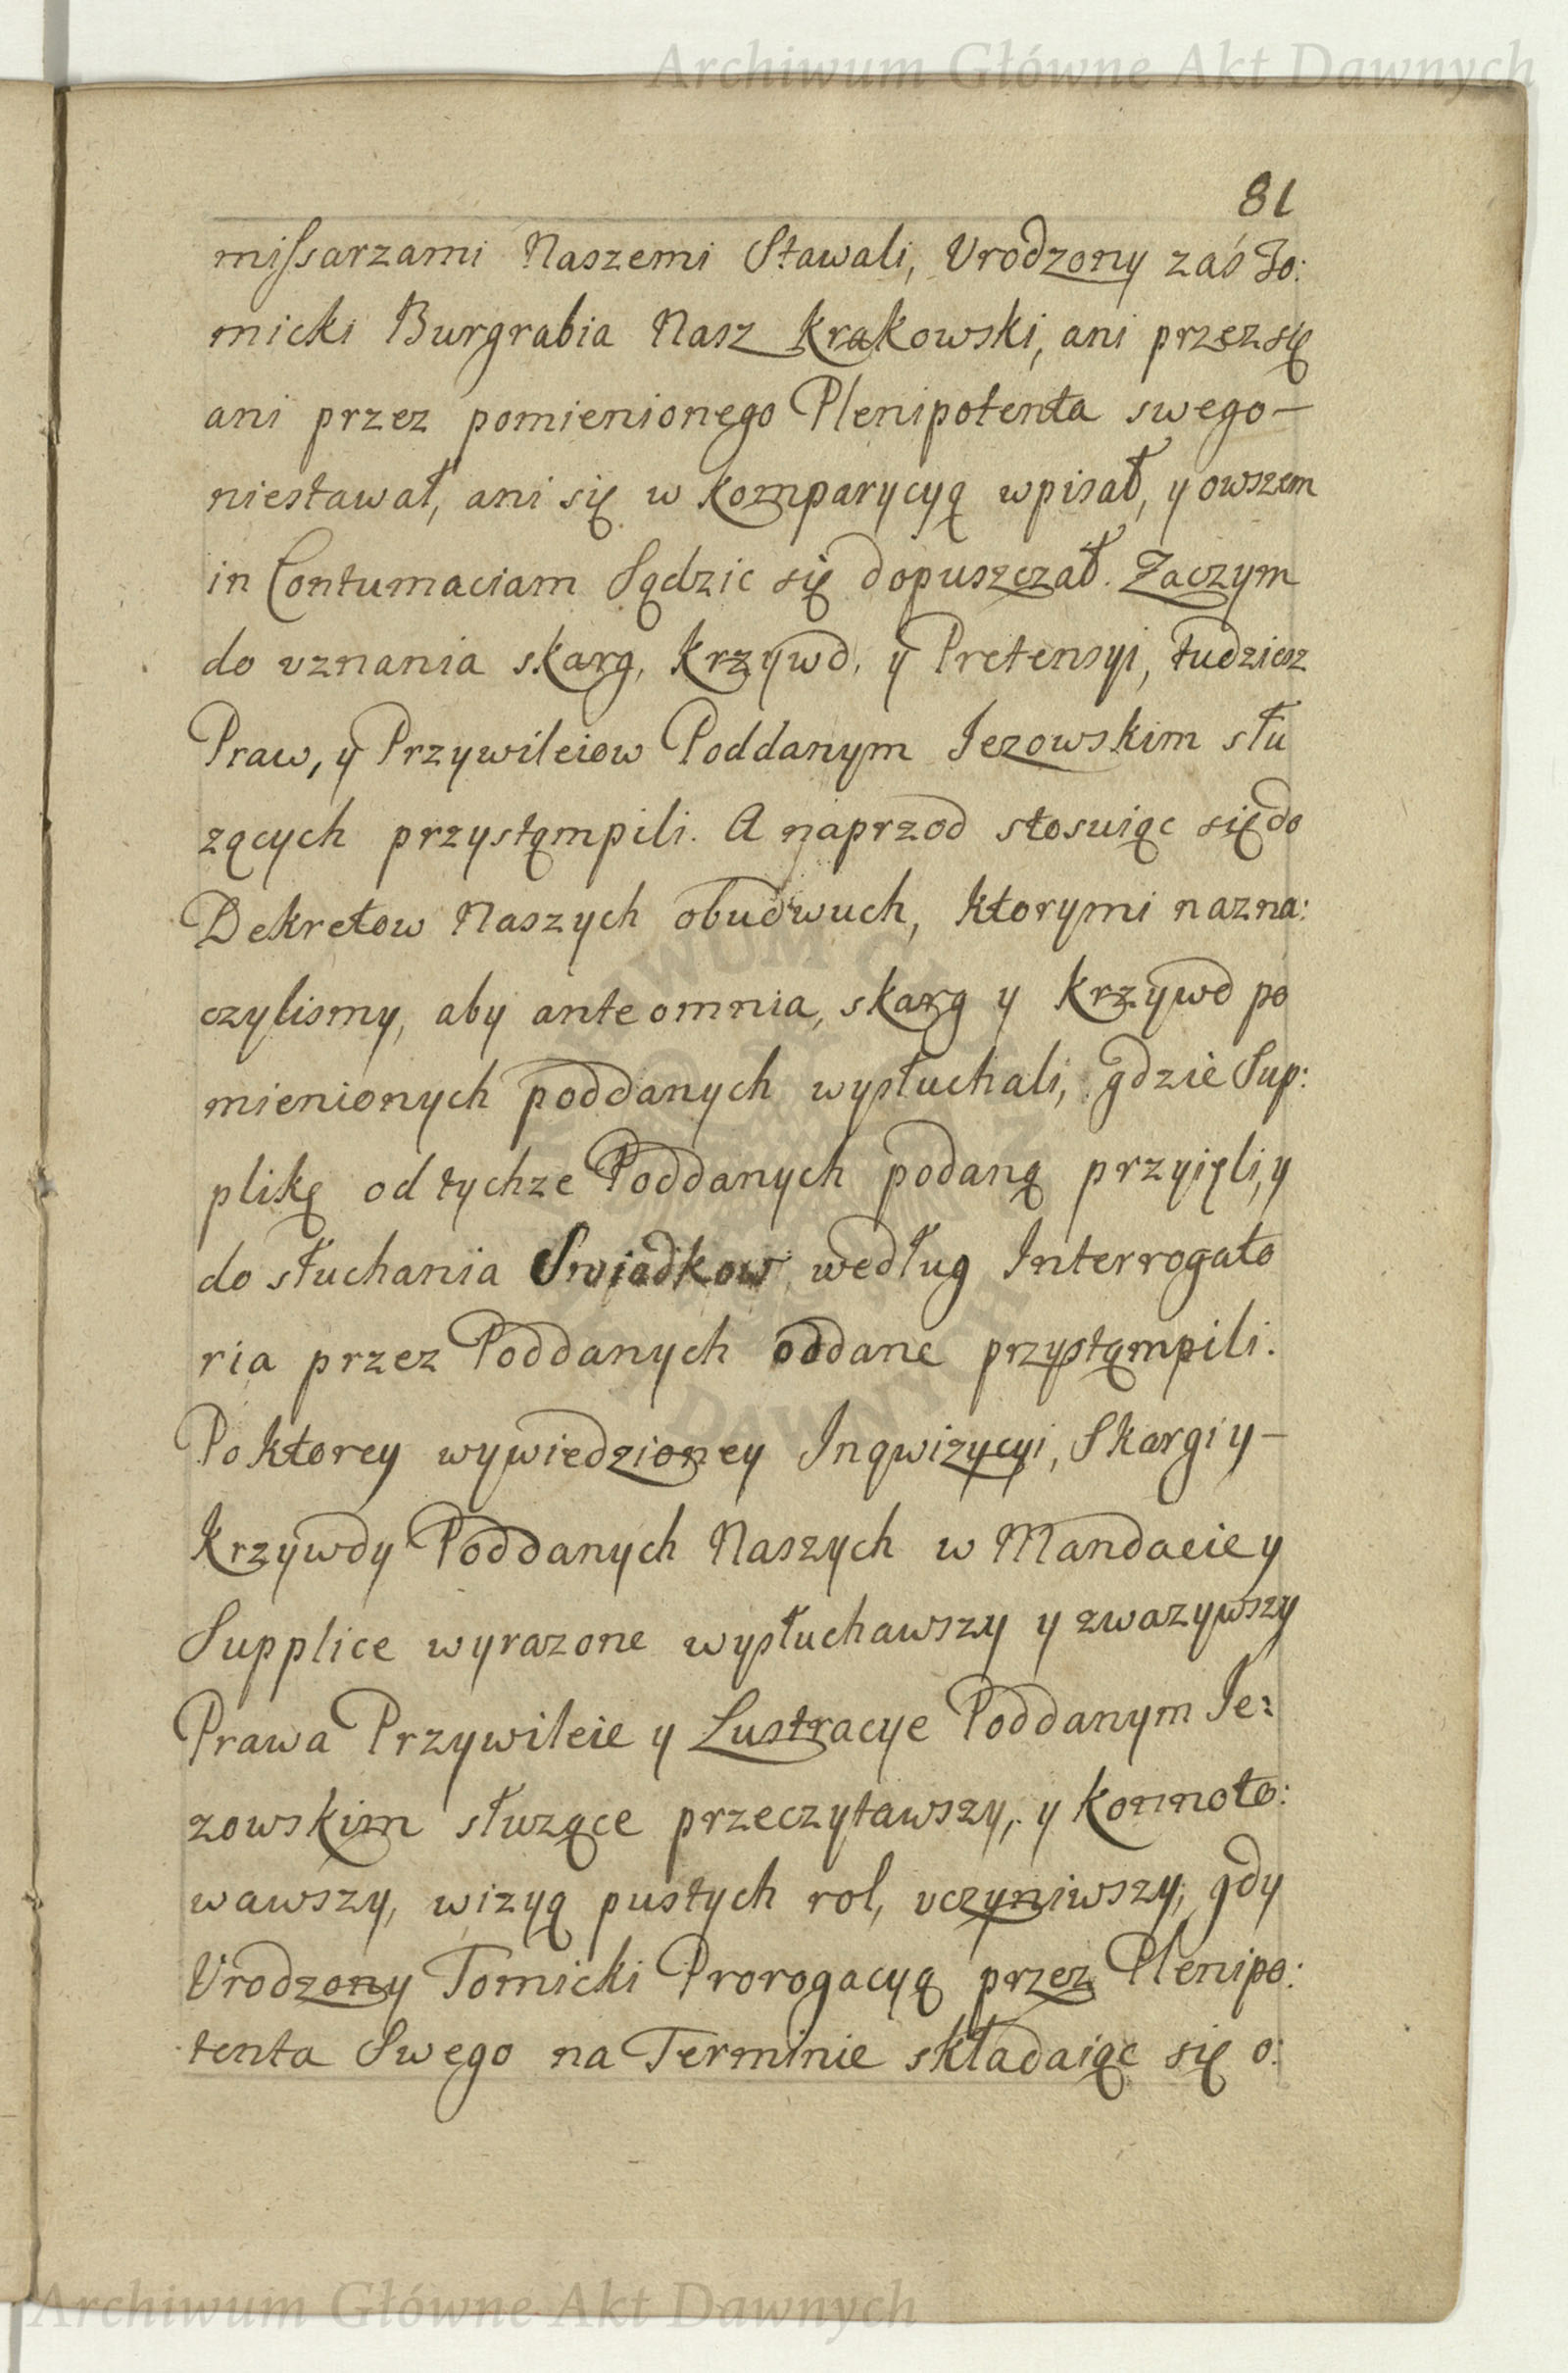 Archiwum Główne Akt Dawnych
81
miſsarzami Naszemi Stawali, Vrodzony zaś To:
micki Burgrabia Nasz Krakowski, ani przez się
ani przez pomienionego Plenipotenta swego—
niestawał, ani się w Komparycyą wpisał, y owszem
in Contumaciam Sądzic się dopuszczał. Zaczym
do vznania skarg, Krzywd, y Pretensyi, tudziesz
Praw, y Przywileiow Poddanym Iezowskim słu
zących przystąmpili. A naprzod stosuiąc się do
Dekretow Naszych obudwuch, ktorymi nazna:
czylismy, aby ante omnia, skarg y Krzywd po
mienionych poddanych wysłuchali, gdzie Sup:
plikę od tychze Poddanych podaną przyięli, y
do słuchania Swiadkow według Interrogato
ria przez Poddanych oddane przystąmpili.
Po ktorey wywiedzioney Inqwizycyi, Skargi y—
Krzywdy Poddanych Naszych w Mandacie y
Supplice wyrazone wysłuchawszy y zwazywszy
Prawa Przywileie y Lustracye Poddanym Ie:
zowskim słuzące przeczytawszy, y Konnoto:
wawszy, wizyą pustych rol, vczyniwszy, gdy
Vrodzony Tomicki Prorogacyą przez Plenipo:
tenta Swego na Terminie składaiąc się o:
Archiwum Główne Akt Dawnych